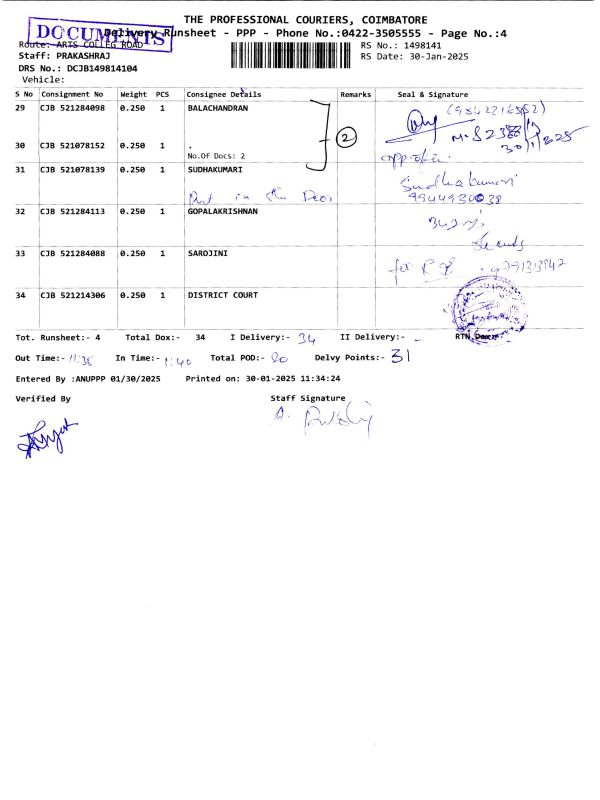 THE PROFESSIONAL COURIERS, COIMBATORE
DOCUMENTS
Delivery Runsheet - PPP - Phone No.:0422-3505555 - Page No.:4
Route: ARTS COLLEG ROAD
RS No.: 1498141
Staff: PRAKASHRAJ
RS Date: 30-Jan-2025
DRS No.: DCJB149814104
Vehicle:
S No Consignment No Weight PCS Consignee Details Remarks Seal & Signature
29 CJB 521284098 0.250 1 BALACHANDRAN
2
30 CJB 521078152 0.250 1 .
No.Of Docs: 2
31 CJB 521078139 0.250 1 SUDHAKUMARI
Sudhakumari
Put in the Door
32 CJB 521284113 0.250 1 GOPALAKRISHNAN
33 CJB 521284088 0.250 1 SAROJINI
for
34 CJB 521214306 0.250 1 DISTRICT COURT
Tot. Runsheet:- 4 Total Dox:- 34 I Delivery:- 34 II Delivery:- - RTN Dox:-
Out Time:- 11:35 In Time:- 1:40 Total POD:- 20 Delvy Points:- 31
Entered By :ANUPPP 01/30/2025 Printed on: 30-01-2025 11:34:24
Verified By Staff Signature